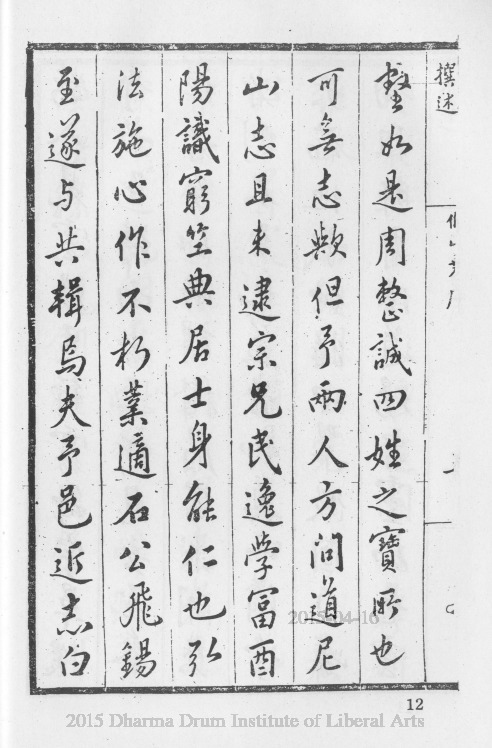 撰述
壑如是周整誠四姓之寶所也
可無志歟但予兩人方問道尼
山志且未逮宗兄民逸學冨酉
陽識窮竺典居士身能仁也弘
法施心作不朽業適石公飛錫
至遂与共輯焉夫予邑近志白
2015-04-16
12
2015 Dharma Drum Institute of Liberal Arts